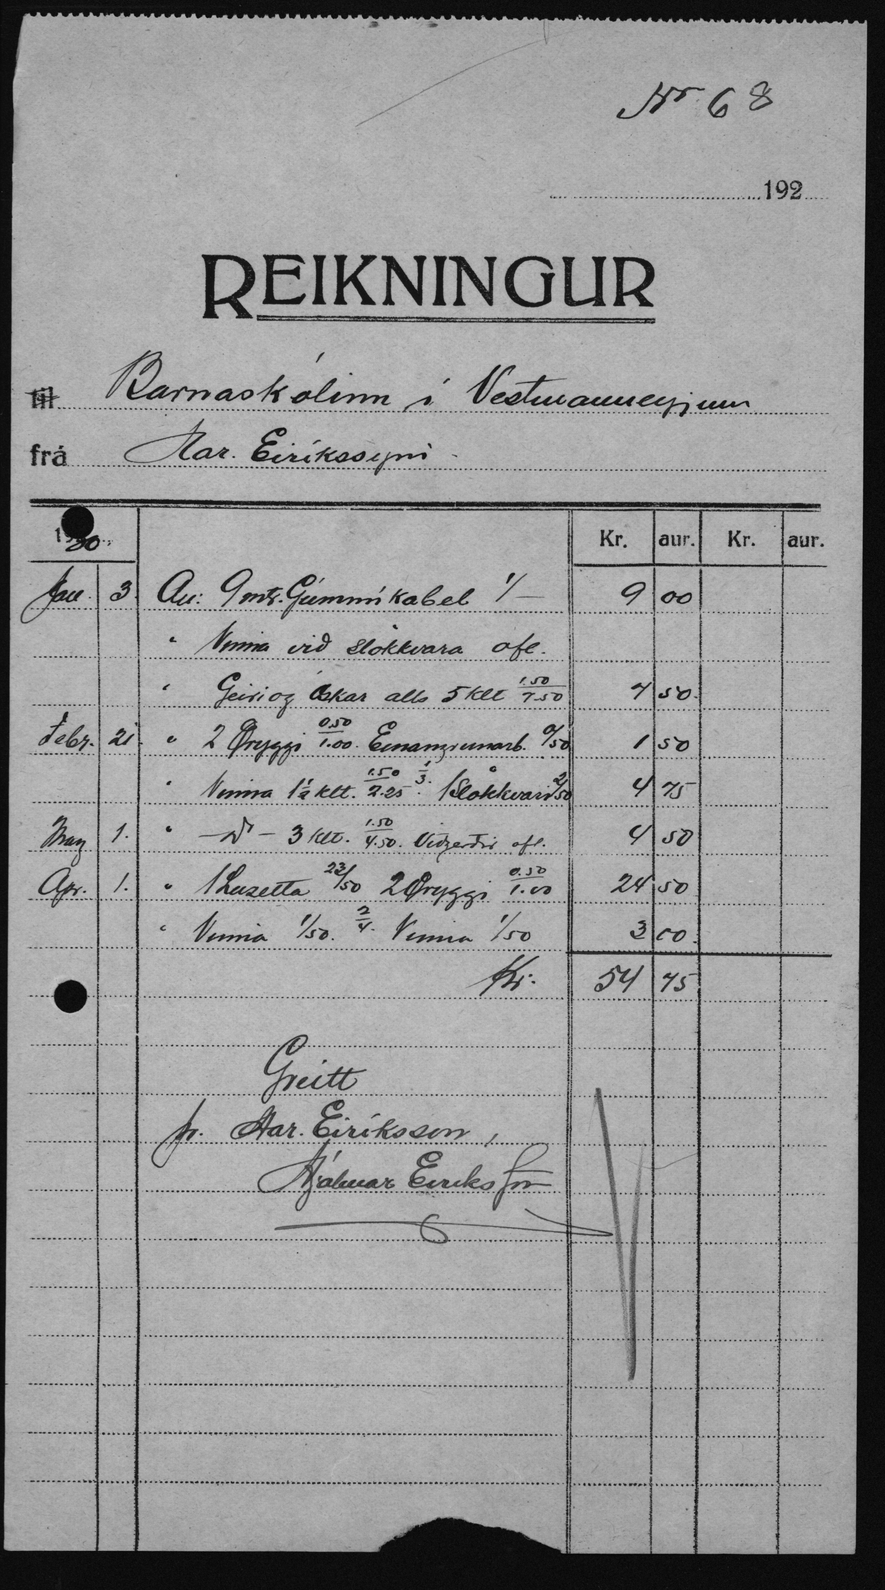 Nr. 68
192
REIKNINGUR
til Barnaskólinn í Vestmanneyjum
frá Har. Eiríkssyni
30.
Kr. aur. Kr. aur.
Jan. 3 Au: 9 mtr. Gúmmíkabel 1/- 9 00
" Vinna við slökkvara ofl.
" Geiri og Óskar alls 5 klt 1.50/7.50 7 50.
Febr. 21. " 2 Öryggi 0.50/1.00. Einangrunarb. 0/50 1 50
" Vinna 1½ klt. 1.50/2.25. 1/3. 1 Slökkvari 2/50 4 75
1. " -"- 3 klt. 1.50/4.50. Viðgerðir ofl. 4 50
Apr. 1. " 1 Luzetta 23/50 2 Öryggi 0.50/1.00 24 50
" Vinna 1/50. 2/4. Vinna 1/50 3 00.
Kr. 54 75
Greitt
pr. Har. Eiríksson,
Hjálmar Eiríksson